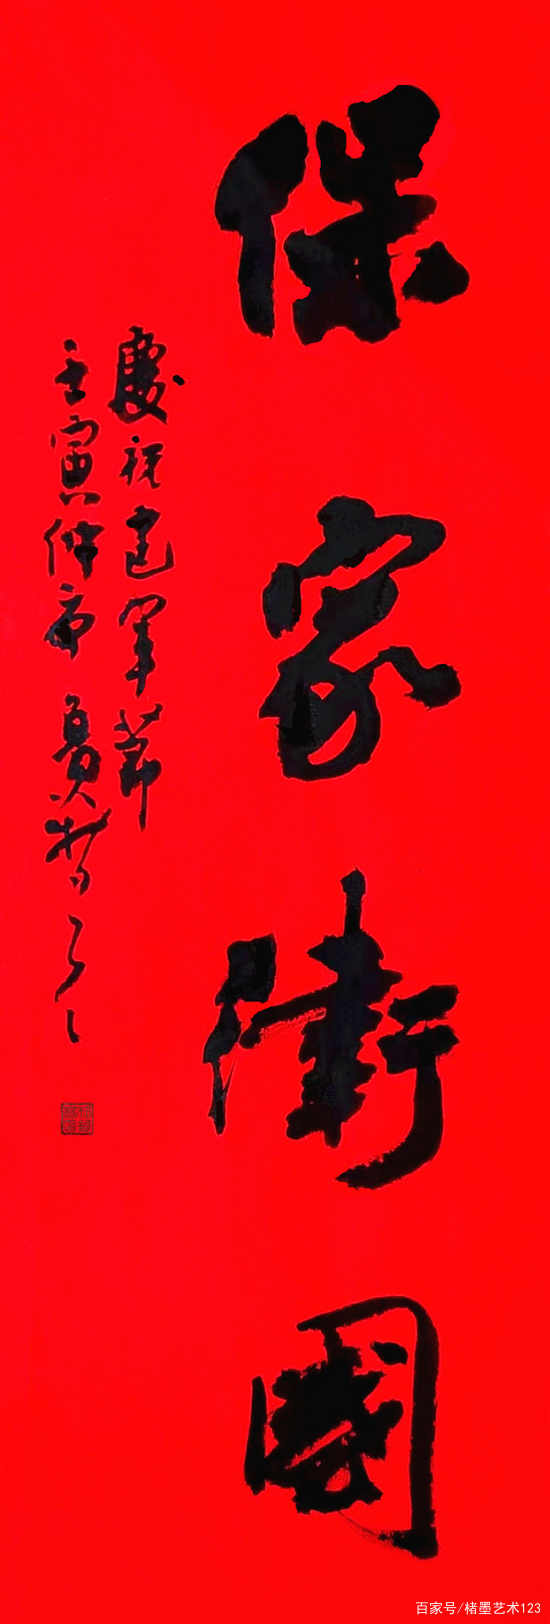 保家衛國
慶祝建軍節
壬寅仲夏
百家号/楮墨艺术123